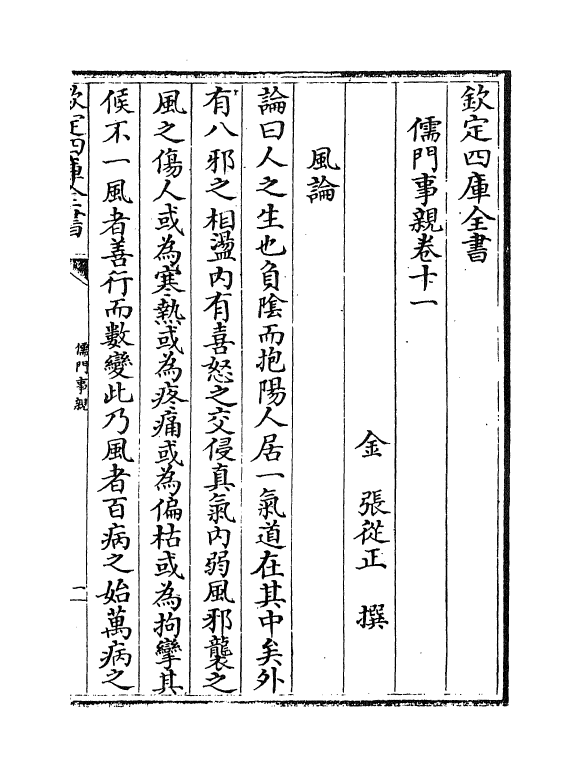 欽定四庫全書
儒門事親卷十一
金 張從正 撰
風論
論曰人之生也負陰而抱陽人居一氣道在其中矣外
有八邪之相盪内有喜怒之交侵真氣内弱風邪襲之
風之傷人或為寒熱或為疼痛或為偏枯或為拘攣其
候不一風者善行而數變此乃風者百病之始萬病之
欽定四庫全書
儒門事親